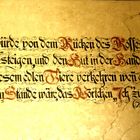 würde von dem Rücken des Rosses
steigen und den Hut in der Hand
esem edlen Tiere verkehren wen
n Stände wär, das Wörtchen „Ich zu